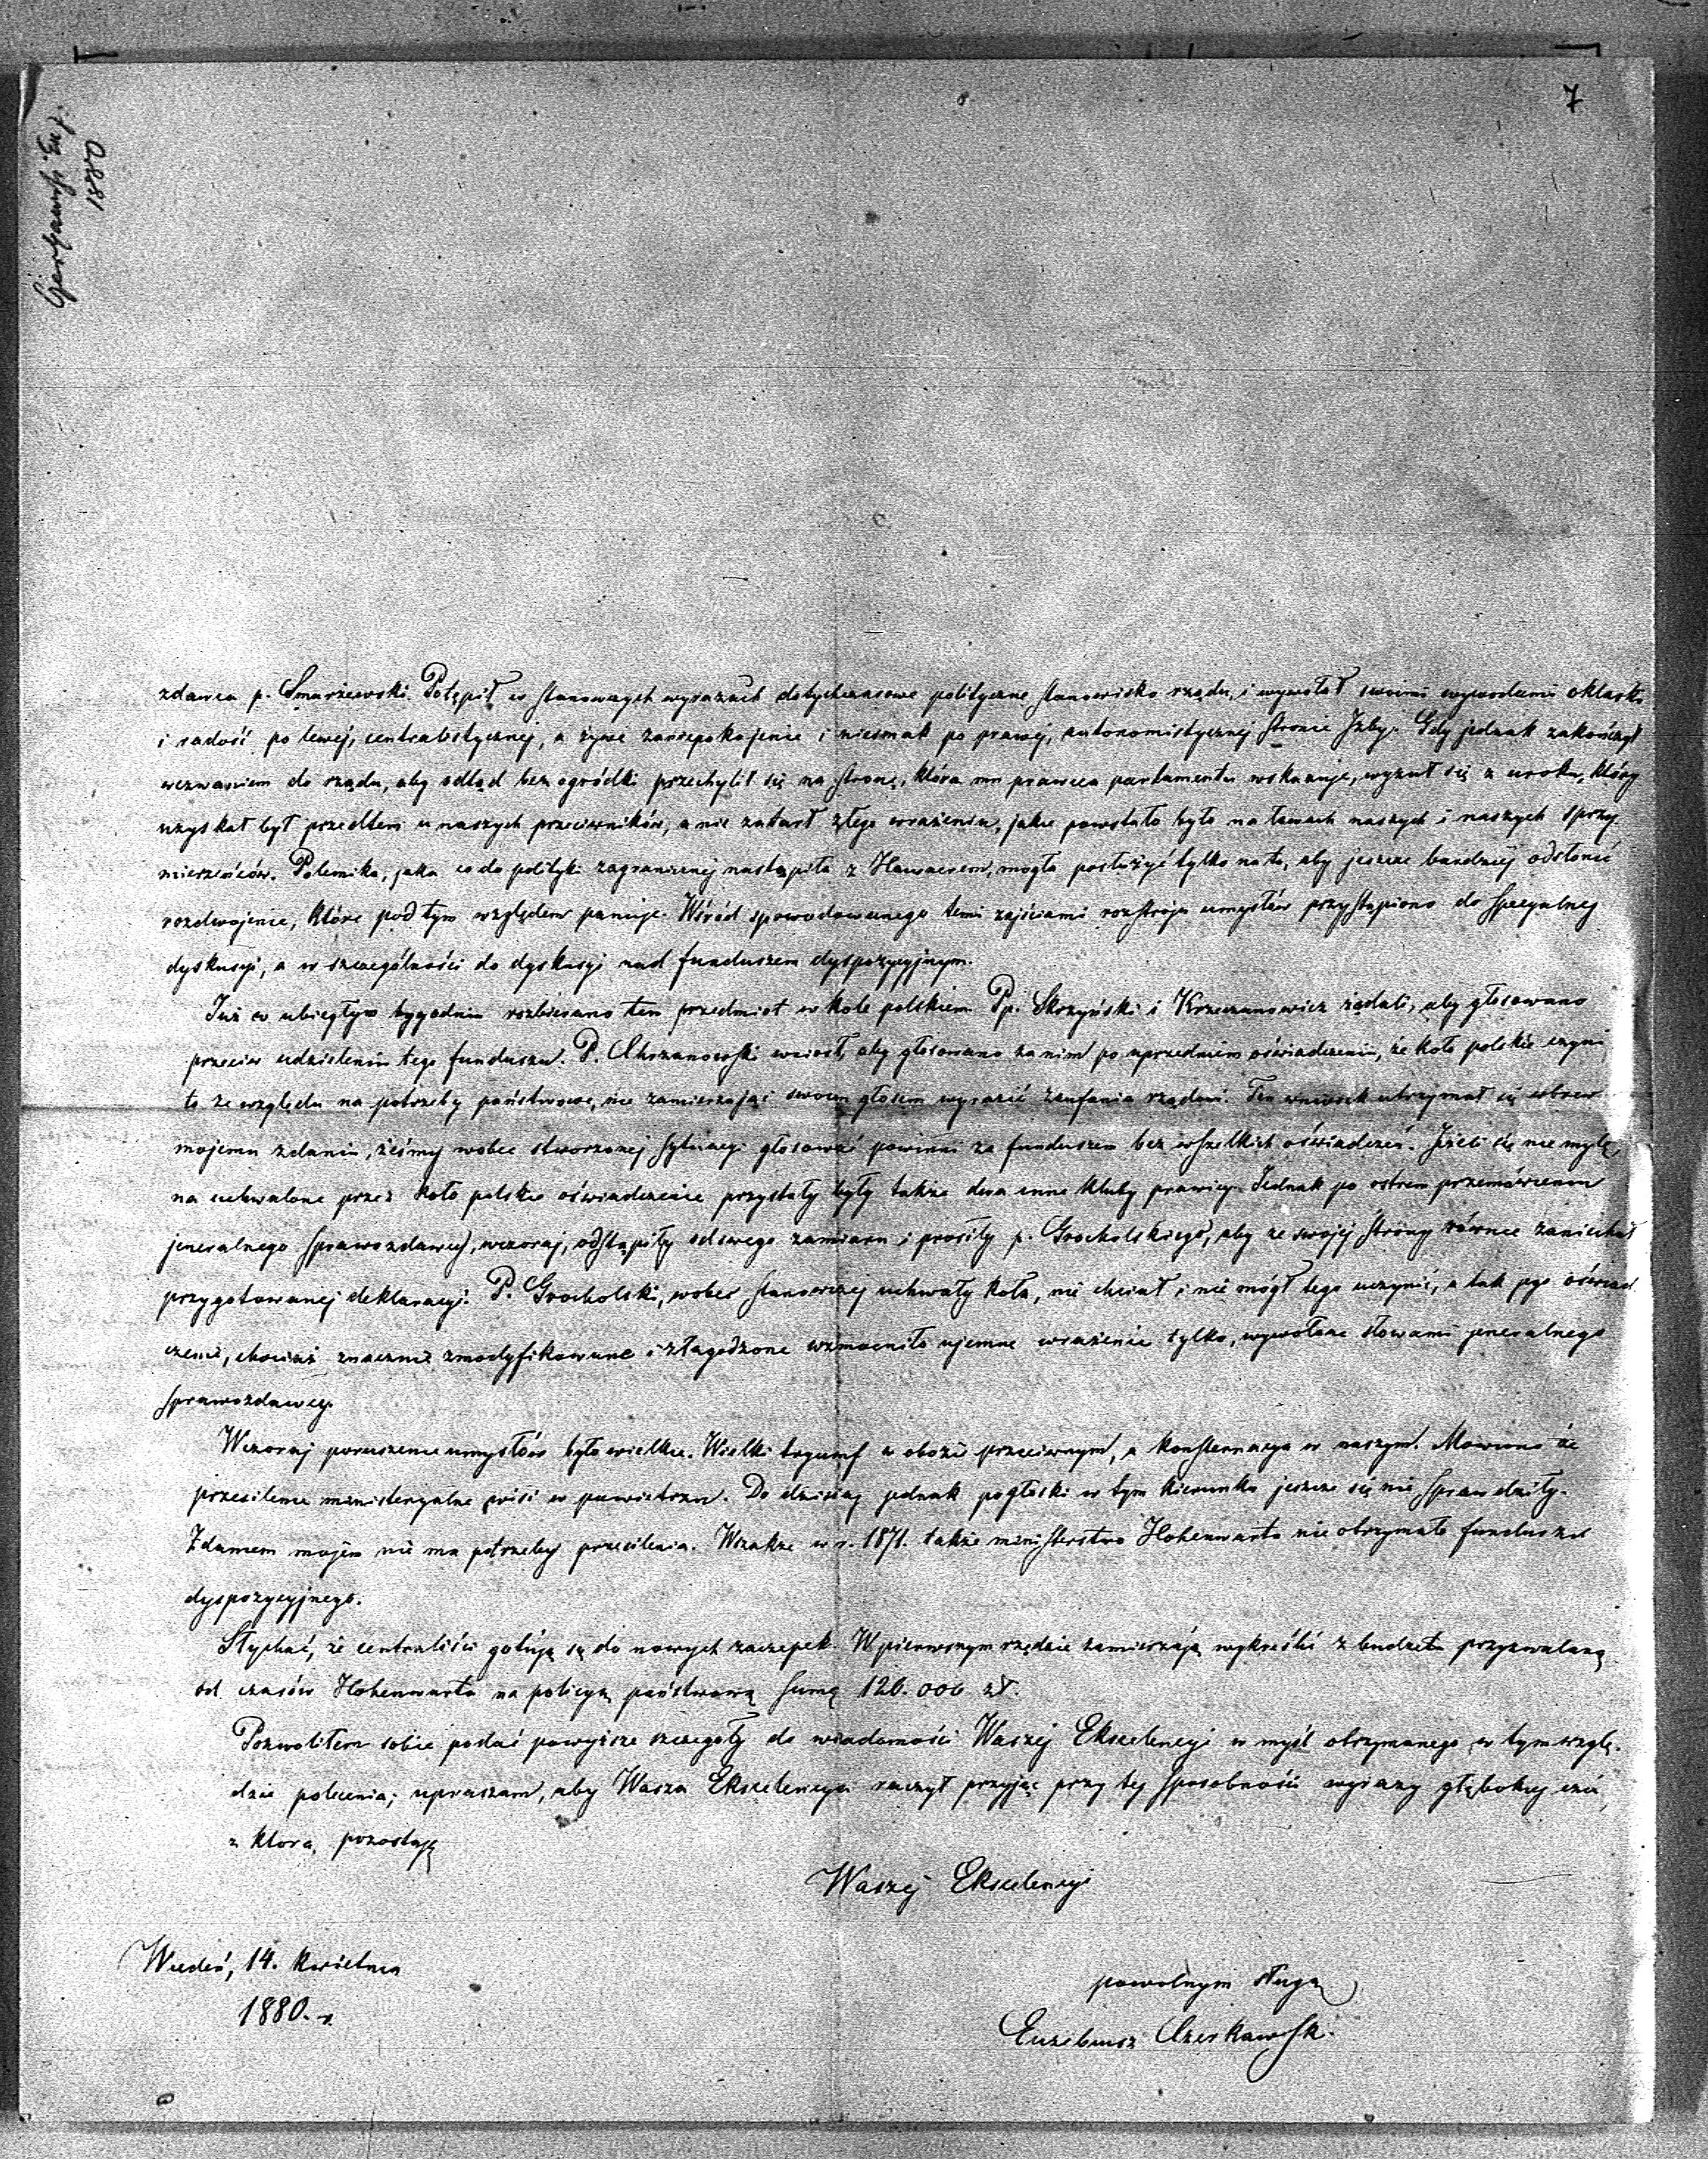 7
1880
Czerkawski Euz.
zdawca p. Smarzewski. Potępił w stanowczych wyrazach dotychczasowe polityczne stanowisko rządu, i wywołał swoimi wywodami oklaski
i radość po lewej, centralistycznej, a żywe zaniepokojenie i niesmak po prawej, autonomistycznej stronie Izby. Gdy jednak zakończył
wezwaniem do rządu, aby odtąd bez ogródki przechylił się na stronę, którą mu prawica parlamentu wskazuje, wyzuł się z uroku, który
uzyskał był przedtem u naszych przeciwników, a nie zatarł złego wrażenia, jakie powstało było na ławach naszych i naszych sprzy-
mierzeńców. Polemika, jaka co do polityki zagranicznej nastąpiła z Hausnerem, mogła posłużyć tylko na to, aby jeszcze bardziej odsłonić
rozdwojenie, które pod tym względem panuje. Wśród spowodowanego temi zajściami rozstroju umysłów przystąpiono do specyalnej
dyskusyi, a w szczególności do dyskusyi nad funduszem dyspozycyjnym.
Już w ubiegłym tygodniu rozbierano ten przedmiot w kole polskiem. Pp. Skrzyński i Krzeczunowicz żądali, aby głosowano
przeciw udzieleniu tego funduszu. P. Chrzanowski wniósł, aby głosowano za nim po uprzedniem oświadczeniu, że koło polskie czyni
to ze względu na potrzeby państwowe, nie zamierzając swoim głosem wyrazić zaufania rządowi. Ten wniosek utrzymał się wbrew
mojemu zdaniu, żeśmy wobec stworzonej sytuacyi głosować powinni za funduszem bez wszelkich oświadczeń. Jeżeli się nie mylę,
na uchwalone przez koło polskie oświadczenie przystały były także dwa inne kluby prawicy. Jednak po ostrem przemówieniu
jeneralnego sprawozdawcy, wczoraj, odstąpiły od swego zamiaru i prosiły p. Grocholskiego, aby ze swojej strony równie zaniechał
przygotowanej deklaracyi. P. Grocholski, wobec stanowczej uchwały koła, nie chciał i nie mógł tego uczynić, a tak jego oświad-
czenie, chociaż znacznie zmodyfikowane i złagodzone wzmocniło ujemne wrażenie tylko, wywołane słowami jeneralnego
sprawozdawcy.
Wczoraj poruszenie umysłów było wielkie. Wielki tryumf w obozie przeciwnym, a konsternacya w naszym. Mówiono że
przesilenie ministeryalne wisi w powietrzu. Do dzisiaj jednak pogłoski w tym kierunku jeszcze się nie sprawdziły.
Zdaniem mojem nie ma potrzeby przesilenia. Wszakże w r. 1871. także ministerstwo Hohenwarta nie otrzymało funduszu
dyspozycyjnego.
Słychać, że centraliści gotują się do nowych zaczepek. W pierwszym rzędzie zamierzają wykreślić z budżetu przyzwalaną
od czasów Hohenwarta na policyą państwową sumę 120.000 zł.
Pozwoliłem sobie podać powyższe szczegóły do wiadomości Waszej Ekscelencyi w myśl otrzymanego w tym wzglę-
dzie polecenia; upraszam, aby Wasza Ekscelencya raczył przyjąć przy tej sposobności wyrazy głębokiej czci,
z którą pozostaję
Waszej Ekscelencyi
Wiedeń, 14. kwietnia
1880. r.
powolnym sługą
Euzebiusz Czerkawski.